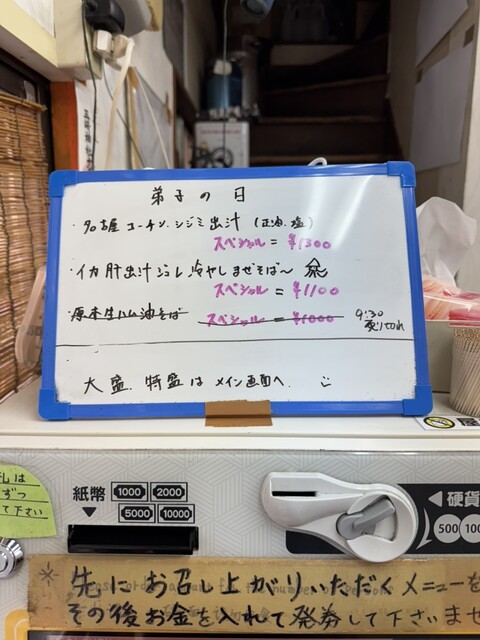 弟子の日
・名古屋コーチン、シジミ出汁 (正油、塩)
スペシャル = ¥1300
・イカ肝出汁ジュレ冷やしまぜそば〜
スペシャル = ¥1100
・原木生ハム油そば
スペシャル = ¥1000
9:30
売り切れ
大盛、特盛はメイン画面へ。
札は
ずつ
て下さい
紙幣
1000 2000
5000 10000
硬貨
500 100
先にお召し上がりいただくメニューを
その後お金を入れて発券して下さいませ